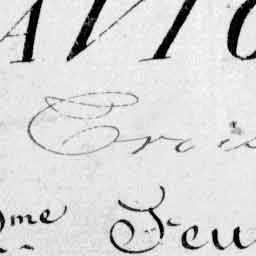 AVIO
Crois
2me Feu